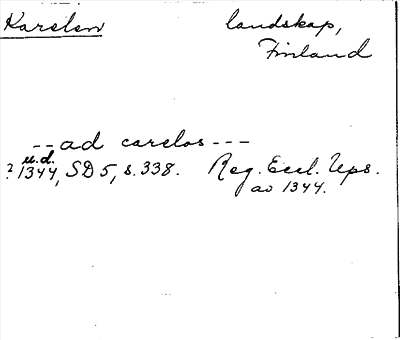 Karelen landskap,
Finland
-- ad carelos ---
u.d.
? 1344, SD 5, s. 338. Reg. Eccl. Ups.
av 1344.